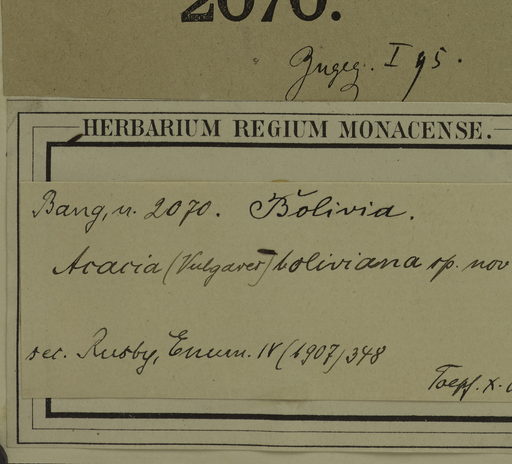 2070.
Zugeg. I 95.
HERBARIUM REGIUM MONACENSE.
Bang, n. 2070. Bolivia.
Acacia (Vulgares) boliviana sp. nov
sec. Rusby, Enum. IV (1907) 348
Toepf. X.